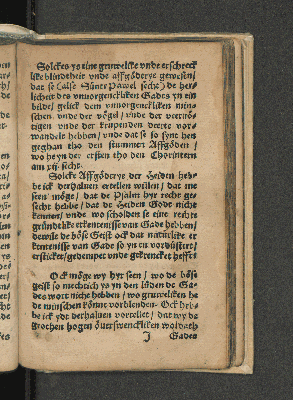 Solckes ys eine gruwelike vnde erschreck
like blindeheit vnde affgöderye gewesen/
dat se (alse Sünte Pawel secht) de her-
licheit des vnuorgenckliken Gades yn ein
bilde/ gelick dem vnuorgenckliken min-
schen/ vnde der vögel/ vnde der veervö-
tigen vnde der krupenden deerte vor-
wandelt hebben/ vnde dat se so synt hen
geghan tho den stummen Affgöden/
wo he yn der ersten tho den Chorintern
am xij. secht.
Solcke Affgöderye der Heiden heb-
be ick derhaluen ertellen willen/ dat me
seen möge/ dat de Psalm hyr recht ge-
secht hebbe/ dat de Heiden Godt nicht
kennen/ vnde wo scholden se eine rechte
gründtlike erkentenisse van Gade hebben/
dewile de böse Geist ock dat natürlike er
kentenisse van Gade so yn en vordüstert/
ersticket/ gedempet vnde gekrencket hefft
Ock möge wy hyr seen/ wo de böse
geist so mechtich ys yn den lüden de Ga-
des wort nicht hebben/ wo gruweliken he
de minschen könne vorblenden. Ock heb-
be ick ydt derhaluen vortellet/ dat wy de
grothen hogen öuerswenckliken woldath
J Gades